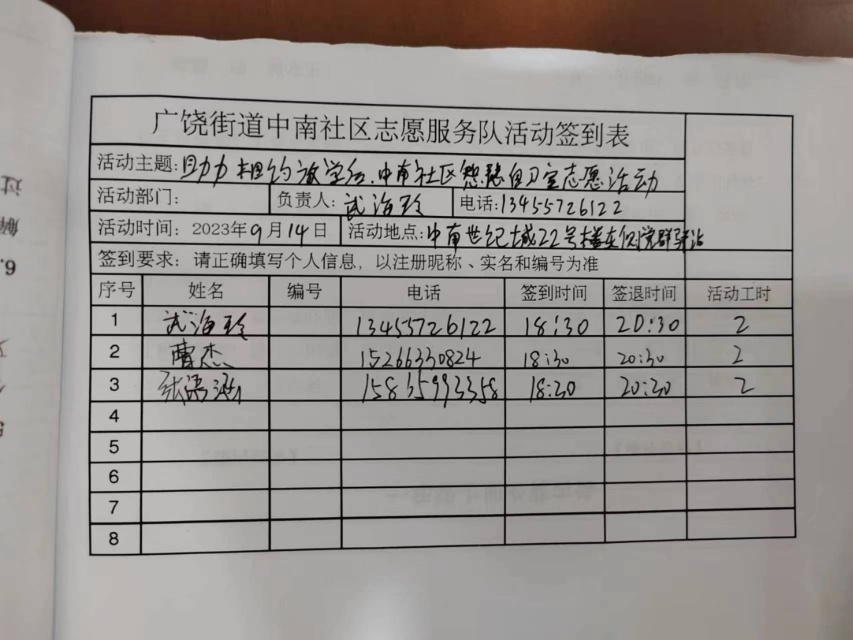 广饶街道中南社区志愿服务队活动签到表
活动主题: 助力 相约放学后.中南社区 自习室志愿活动
活动部门: 负责人: 武海玲 电话:13455726122
活动时间: 2023年9月14日 活动地点: 中南世纪城22号楼东侧党群驿站
签到要求: 请正确填写个人信息，以注册昵称、实名和编号为准
序号 姓名 编号 电话 签到时间 签退时间 活动工时
1 武海玲 13455726122 18:30 20:30 2
2 曹杰 15266330824 18:30 20:30 2
3 15835993358 18:30 20:30 2
4
5
6
7
8